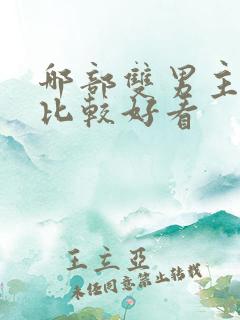 那部雙男主
比較好看
王立亞
未经同意禁止转载